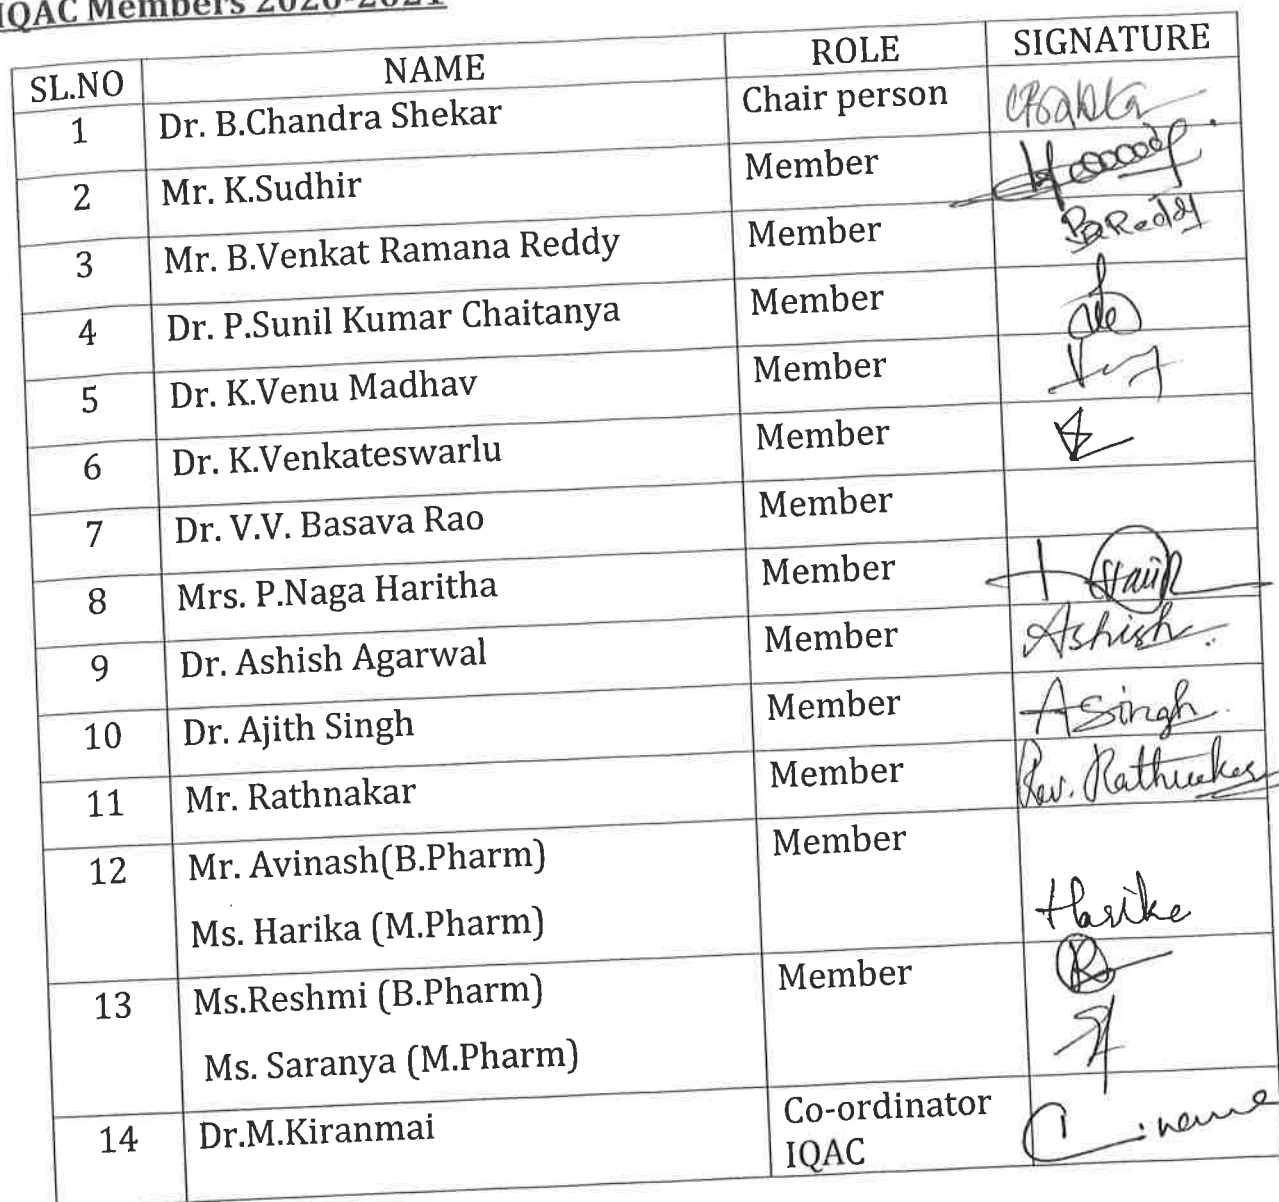 IQAC Members 2020-2021
SL.NO NAME ROLE SIGNATURE
1 Dr. B.Chandra Shekar Chair person
2 Mr. K.Sudhir Member
3 Mr. B.Venkat Ramana Reddy Member BReddy
4 Dr. P.Sunil Kumar Chaitanya Member
5 Dr. K.Venu Madhav Member
6 Dr. K.Venkateswarlu Member
7 Dr. V.V. Basava Rao Member
8 Mrs. P.Naga Haritha Member
9 Dr. Ashish Agarwal Member Ashish
10 Dr. Ajith Singh Member A Singh
11 Mr. Rathnakar Member
12 Mr. Avinash(B.Pharm) Member
Ms. Harika (M.Pharm) Harika
13 Ms.Reshmi (B.Pharm) Member
Ms. Saranya (M.Pharm)
14 Dr.M.Kiranmai Co-ordinator
IQAC